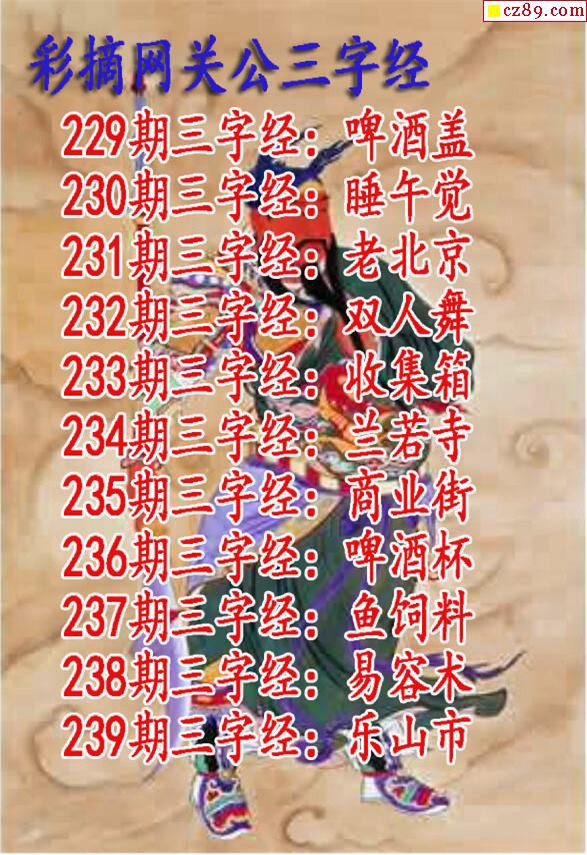 cz89.com
彩摘网关公三字经
229期三字经：啤酒盖
230期三字经：睡午觉
231期三字经：老北京
232期三字经：双人舞
233期三字经：收集箱
234期三字经：兰若寺
235期三字经：商业街
236期三字经：啤酒杯
237期三字经：鱼饲料
238期三字经：易容术
239期三字经：乐山市